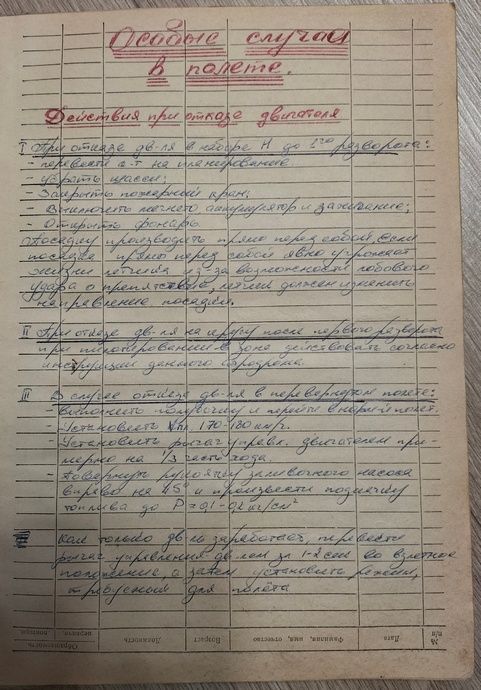 Особые случаи
в полете.
Действия при отказе двигателя
I При отказе дв-ля в наборе Н до 1го разворота:
- перевести с-т на планирование
- убрать шасси;
- Закрыть пожарный кран;
- Выключить магнето, аккумулятор и зажигание;
- Открыть фонарь
Посадку производить прямо перед собой, Если
посадка прямо перед собой явно угрожает
жизни летчика из-за возможности лобового
удара о препятствие, летчик должен изменить
направление посадки.
II При отказе дв-ля на кругу после первого разворота
при пилотировании в зоне действовать согласно
инструкции данного аэродрома.
III В случае отказа дв-ля в перевернутом полете:
- выполнить полубочку и перейти в норм-й полет.
- Установить Vпл 170-180 км/ч.
- Установить рычаг управл. двигателем при-
мерно на 1/3 части хода.
- Повернуть рукоятку заливочного насоса
вправо на 45° и произвести подкачку
топлива до Р=0,1-0,2 кг/см²
Как только дв-ль заработает, перевести
рычаг управления дв-лем за 1-2 сек во взлетное
положение, а затем установить режим,
требуемый для полёта
№ п/п
Дата
Фамилия, имя, отчество
Возраст
Должность
Обращаемость
первичн.
повторн.